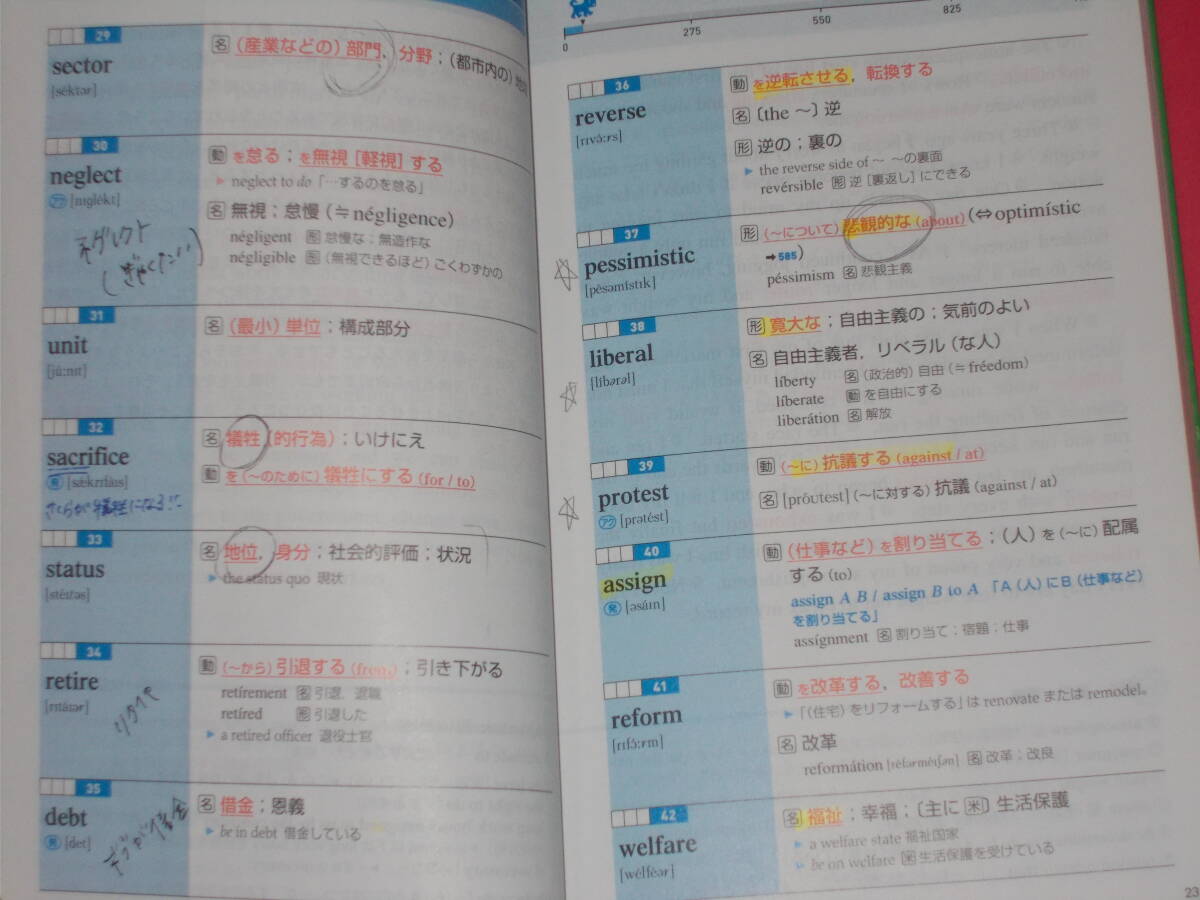 29
sector
[séktər]
名 (産業などの) 部門, 分野 ; (都市内の) 地
30
neglect
アク [nɪglékt]
ネグレクト
(ぎゃくたい)
動 を怠る ; を無視 [軽視] する
▶ neglect to do 「…するのを怠る」
名 無視 ; 怠慢 (≒ négligence)
négligent 形 怠慢な ; 無造作な
négligible 形 (無視できるほど) ごくわずかの
31
unit
[júːnɪt]
名 (最小) 単位 ; 構成部分
32
sacrifice
発 [sǽkrɪfàɪs]
さくらが犠牲になる
名 犠牲 (的行為) ; いけにえ
動 を (〜のために) 犠牲にする (for / to)
33
status
[stéɪtəs]
名 地位, 身分 ; 社会的評価 ; 状況
▶ the status quo 現状
34
retire
[rɪtáɪər]
リタイヤ
動 (〜から) 引退する (from) ; 引き下がる
retírement 名 引退, 退職
retíred 形 引退した
▶ a retired officer 退役士官
35
debt
発 [det]
デブが借金
名 借金 ; 恩義
▶ be in debt 借金している
0 275 550 825
36
reverse
[rɪvə́ːrs]
動 を逆転させる, 転換する
名 〔the 〜〕 逆
形 逆の ; 裏の
▶ the reverse side of 〜 〜の裏面
revérsible 形 逆 [裏返し] にできる
37
pessimistic
[pèsəmístɪk]
形 (〜について) 悲観的な (about) (⇔ optimístic
➡ 585)
péssimism 名 悲観主義
38
liberal
[líbərəl]
形 寛大な ; 自由主義の ; 気前のよい
名 自由主義者, リベラル (な人)
líberty 名 (政治的) 自由 (≒ fréedom)
líberate 動 を自由にする
liberátion 名 解放
39
protest
アク [prətést]
動 (〜に) 抗議する (against / at)
名 [próʊtest] (〜に対する) 抗議 (against / at)
40
assign
発 [əsáɪn]
動 (仕事など) を割り当てる ; (人) を (〜に) 配属
する (to)
assign A B / assign B to A 「A (人) にB (仕事など)
を割り当てる」
assígnment 名 割り当て ; 宿題 ; 仕事
41
reform
[rɪfɔ́ːrm]
動 を改革する, 改善する
▶ 「(住宅) をリフォームする」は renovate または remodel。
名 改革
reformátion [rèfərméɪʃən] 名 改革 ; 改良
42
welfare
[wélfèər]
名 福祉 ; 幸福 ; 〔主に 米〕 生活保護
▶ a welfare state 福祉国家
▶ be on welfare 米 生活保護を受けている
23